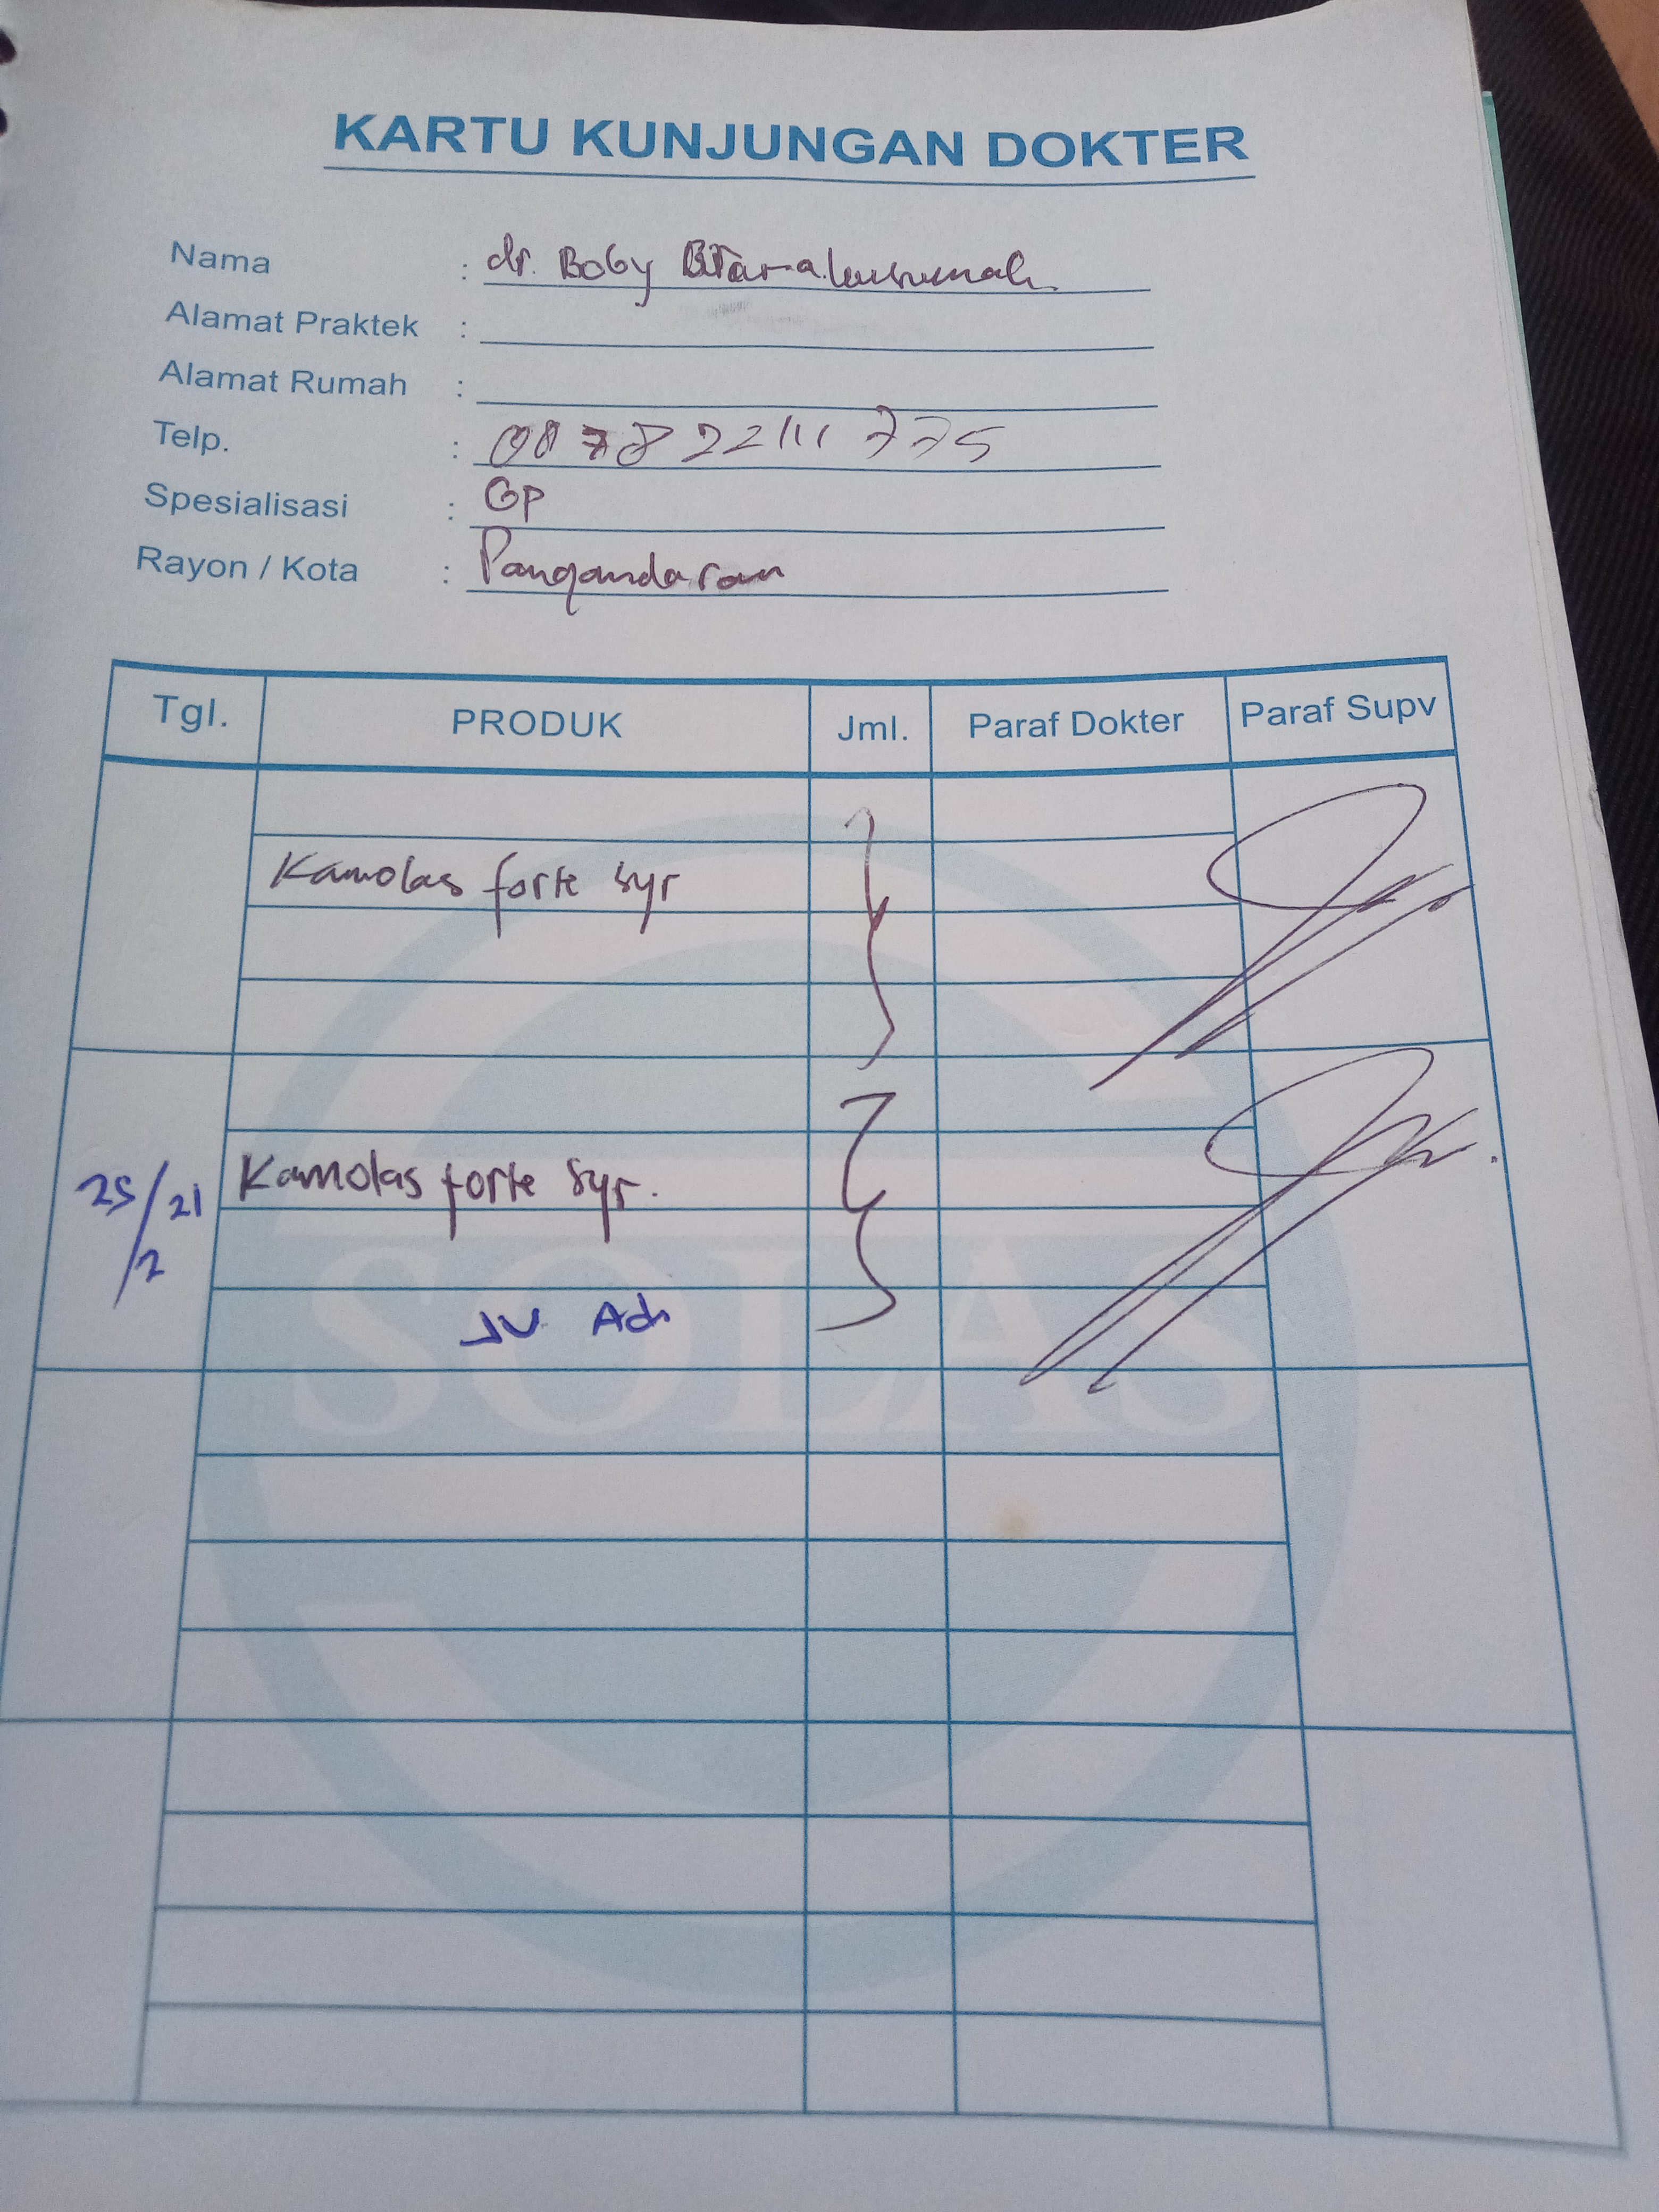 KARTU KUNJUNGAN DOKTER
Nama : dr. Boby
Alamat Praktek :
Alamat Rumah :
Telp. : 087822111775
Spesialisasi : GP
Rayon / Kota : Pangandaran
Tgl. PRODUK Jml. Paraf Dokter Paraf Supv
Kamolas forte syr
25/2/21 Kamolas forte syr.
SOLAS